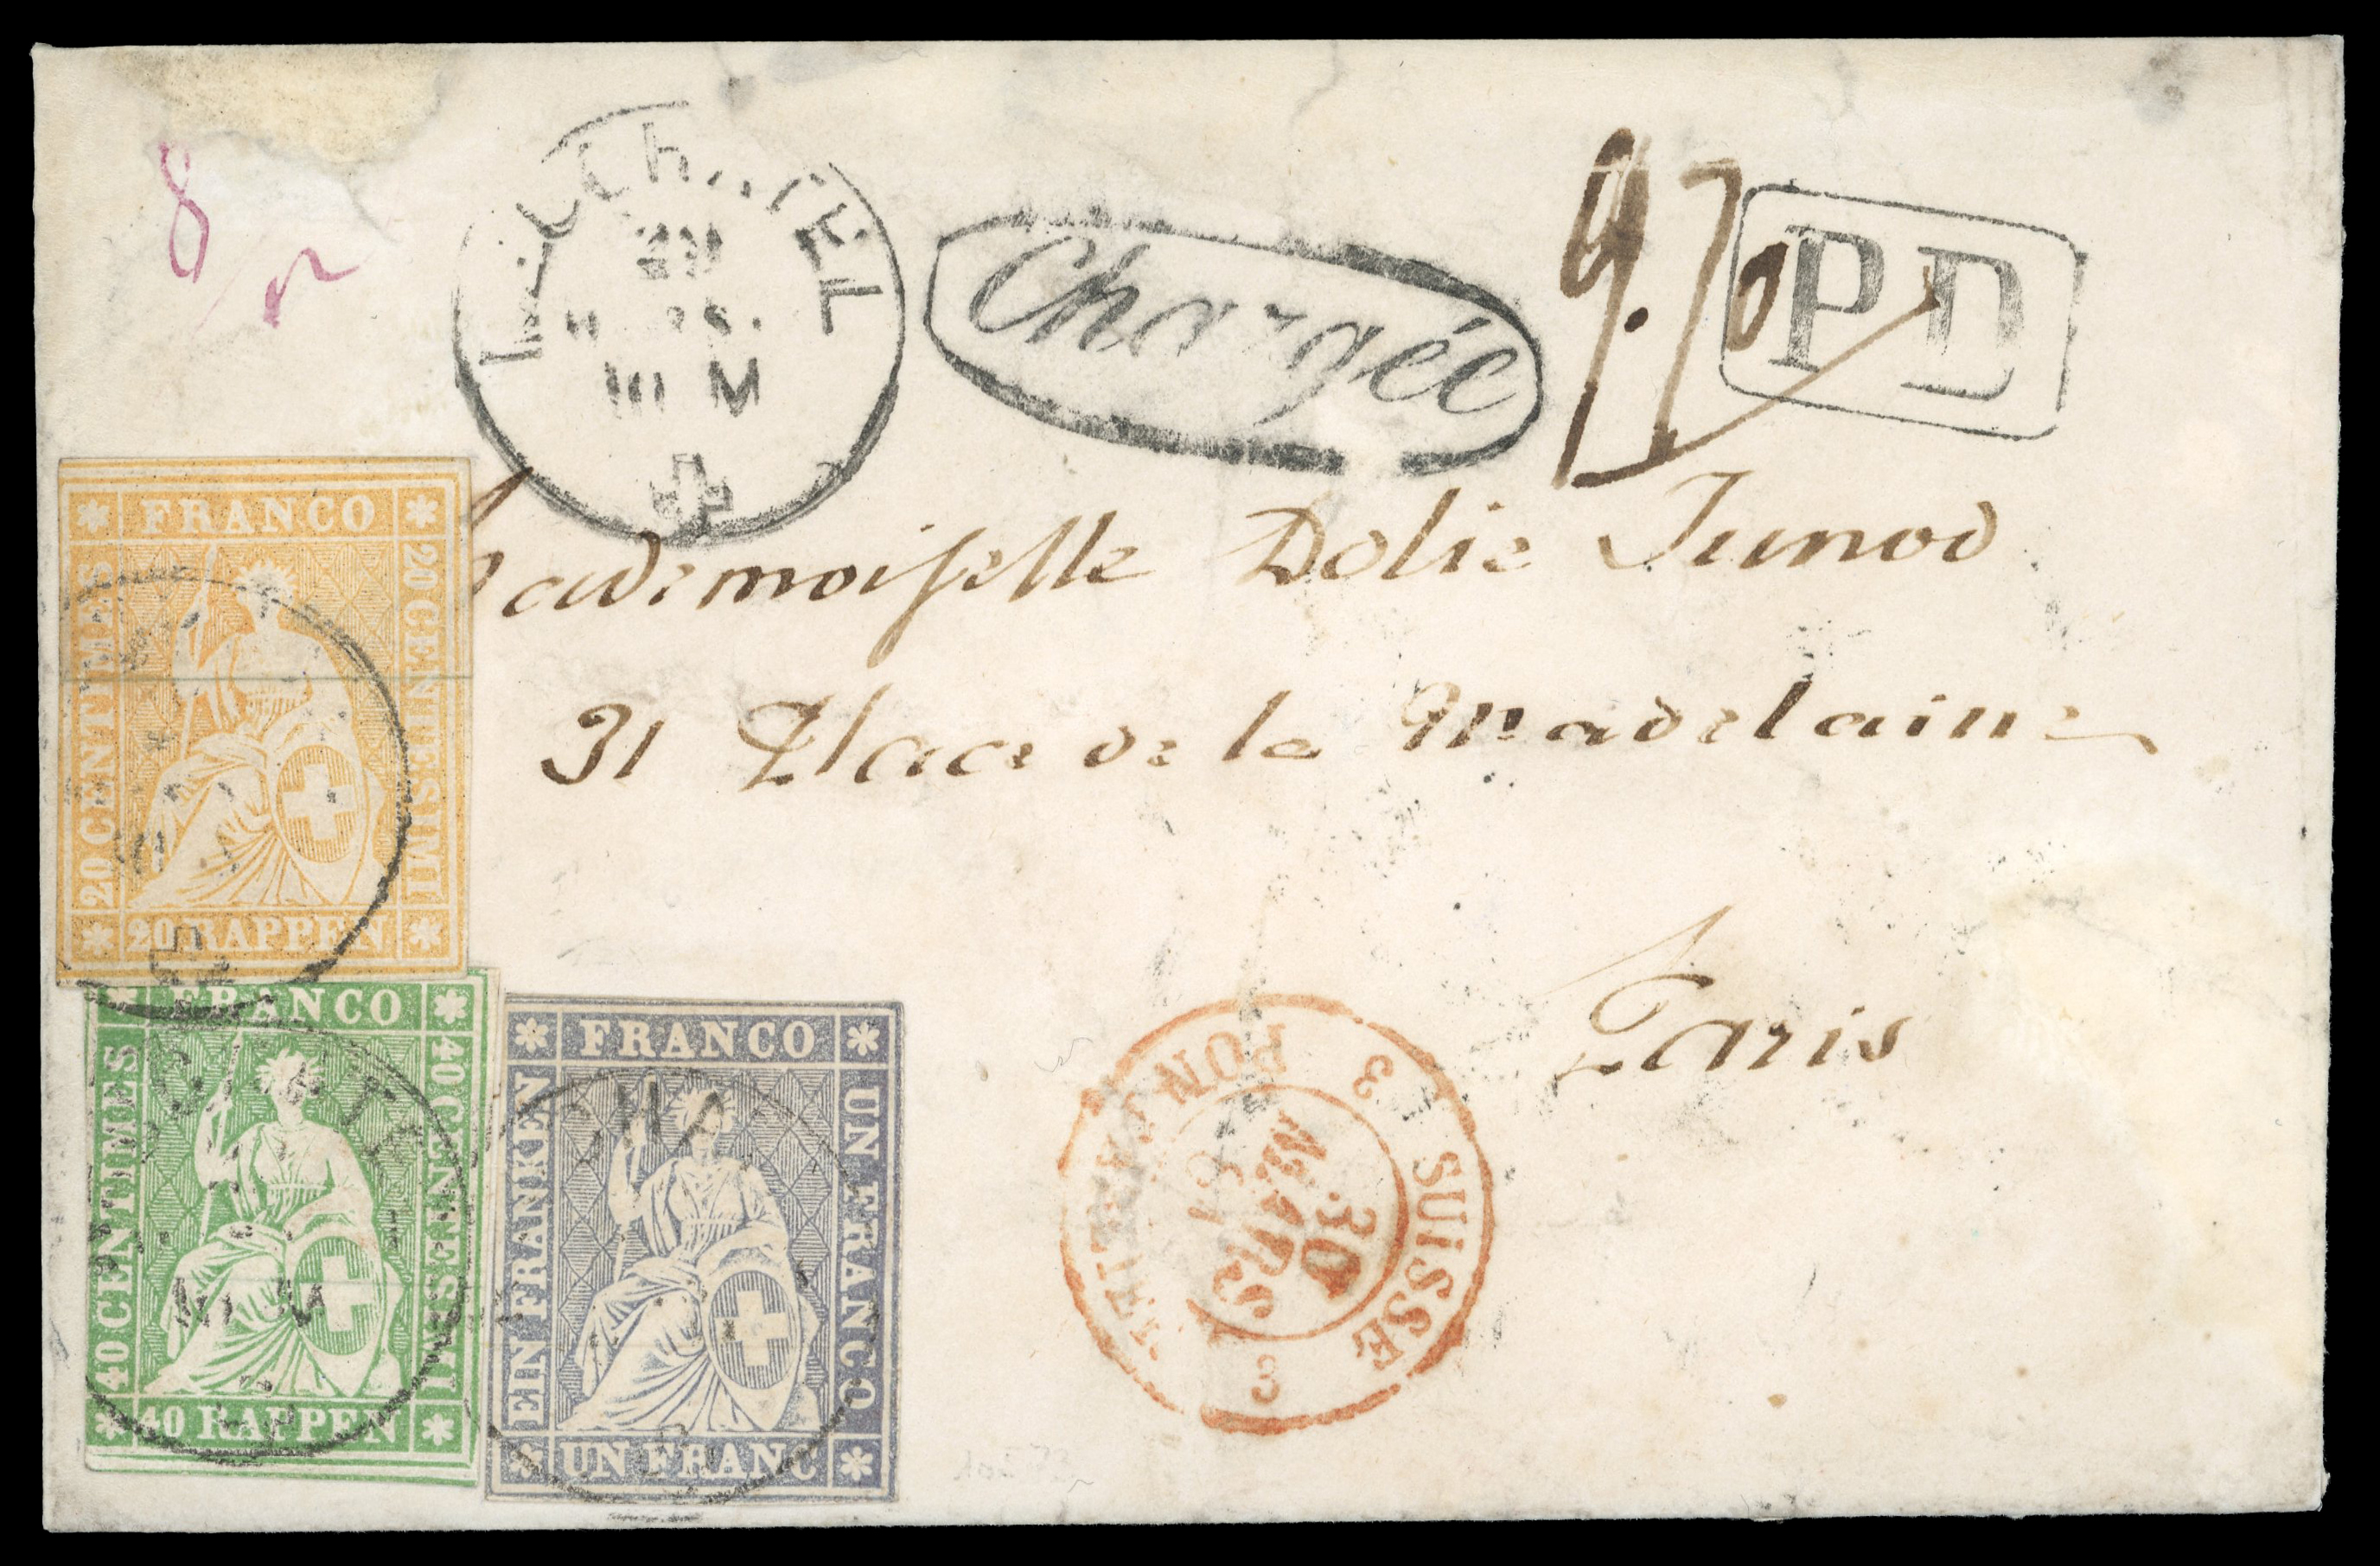 8
Chargée
9.70
PD
Mademoiselle Dolie Junod
31 Place de la Madelaine
Paris
FRANCO
20 CENTIMES
20 CENTESIMI
20 RAPPEN
FRANCO
40 CENTIMES
40 CENTESIMI
40 RAPPEN
10 M
FRANCO
EIN FRANKEN
UN FRANCO
UN FRANC
3 SUISSE 3
30
MARS
61